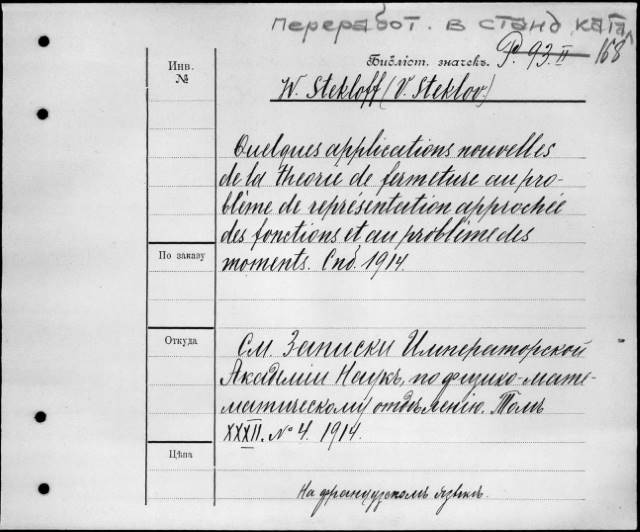 переработ. в станд. ката
Инв.
№
Библіот. значекъ. Р. 93.II 168
W. Stekloff (V. Steklov.)
Quelques applications nouvelles
de la théorie de fermeture au pro-
blème de représentation approchée
des fonctions et au problème des
moments. Спб. 1914.
По заказу
Откуда
См. Записки Императорской
Академіи Наукъ, по физико-мате-
матическому отдѣленію. Томъ
XXXII. № 4. 1914.
Цѣна
На французскомъ языкѣ.